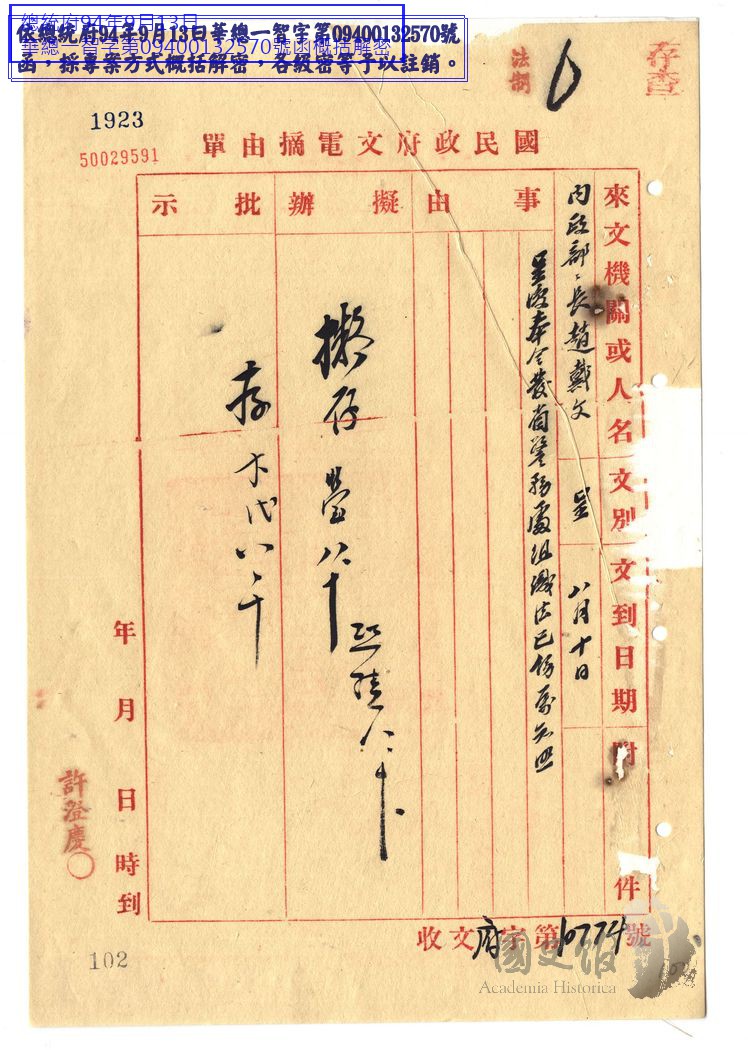 總統府94年9月13日
華總一智字第09400132570號函概括解密
依總統府94年9月13日華總一智字第09400132570號
函，採專案方式概括解密，各級密等予以註銷。
存查
法制
1923
50029591
國民政府文電摘由單
來文機關或人名
內政部部長趙戴文
文別
呈
文到日期
八月十日
附件
事由
呈復奉令發省警務處組織法已飭屬知照
擬辦
擬存
八 十
批示
存
年月日時到
許澄慶
收文府字第10774號
102
國史館
Academia Historica